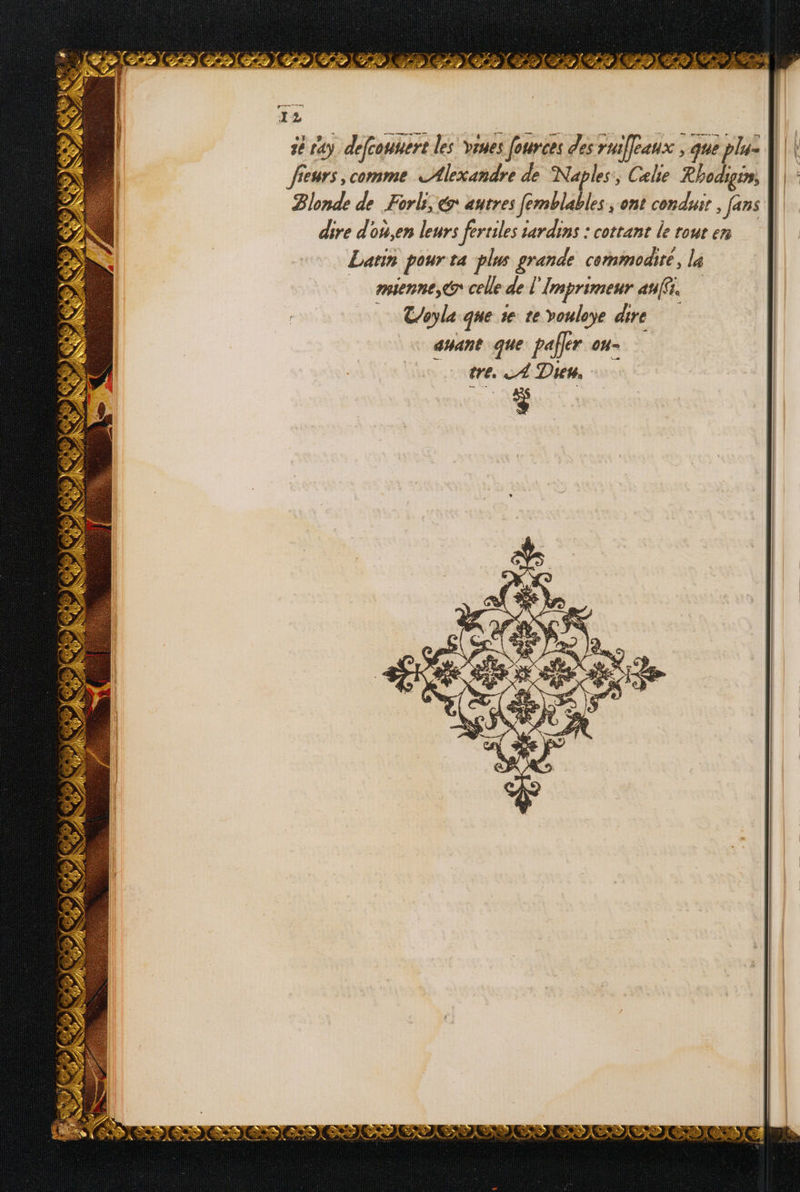 12
ie t'ay descouuert les viues sources des ruisseaux, que plu-
sieurs, comme Alexandre de Naples, Celie Rhodigin,
Blonde de Forli, & autres semblables, ont conduit, sans
dire d'où, en leurs fertiles iardins : cottant le tout en
Latin pour ta plus grande commodité, la
mienne, & celle de l'Imprimeur aussi.
Voyla que ie te vouloye dire
auant que passer ou-
tre. A Dieu.